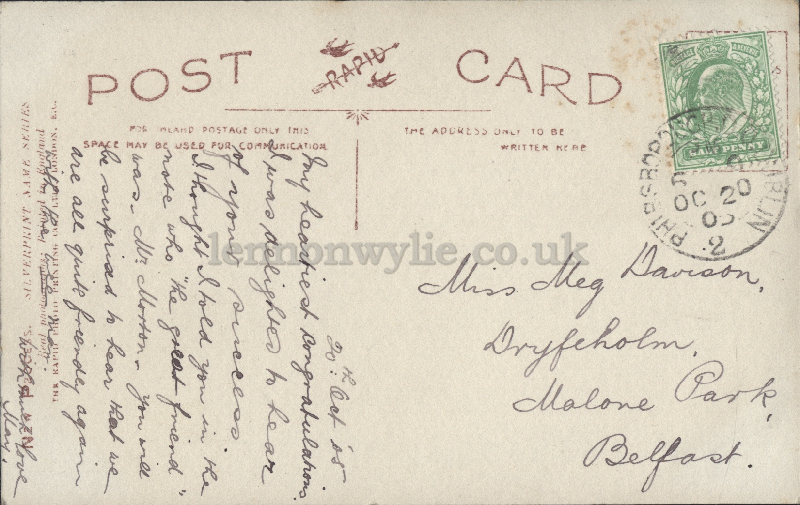 POST CARD
RAPID
FOR INLAND POSTAGE ONLY THIS
SPACE MAY BE USED FOR COMMUNICATION
THE ADDRESS ONLY TO BE
WRITTEN HERE
HALF PENNY
PHIBSBORO
DUBLIN
OC 20
05
2
20th Oct '05
My heartiest congratulations
I was delighted to hear
of your success.
I thought I told you in the
note who "the great friend"
was. Mr Morton. You will
be surprised to hear that we
are all quite friendly again
with much love
May.
Miss Meg Davison,
Dryfeholm,
Malone Park,
Belfast.
SILVERPRINT NAME SERIES
THE RAPID PHOTO PRINTING CO
LONDON, E.C.
lennonwylie.co.uk